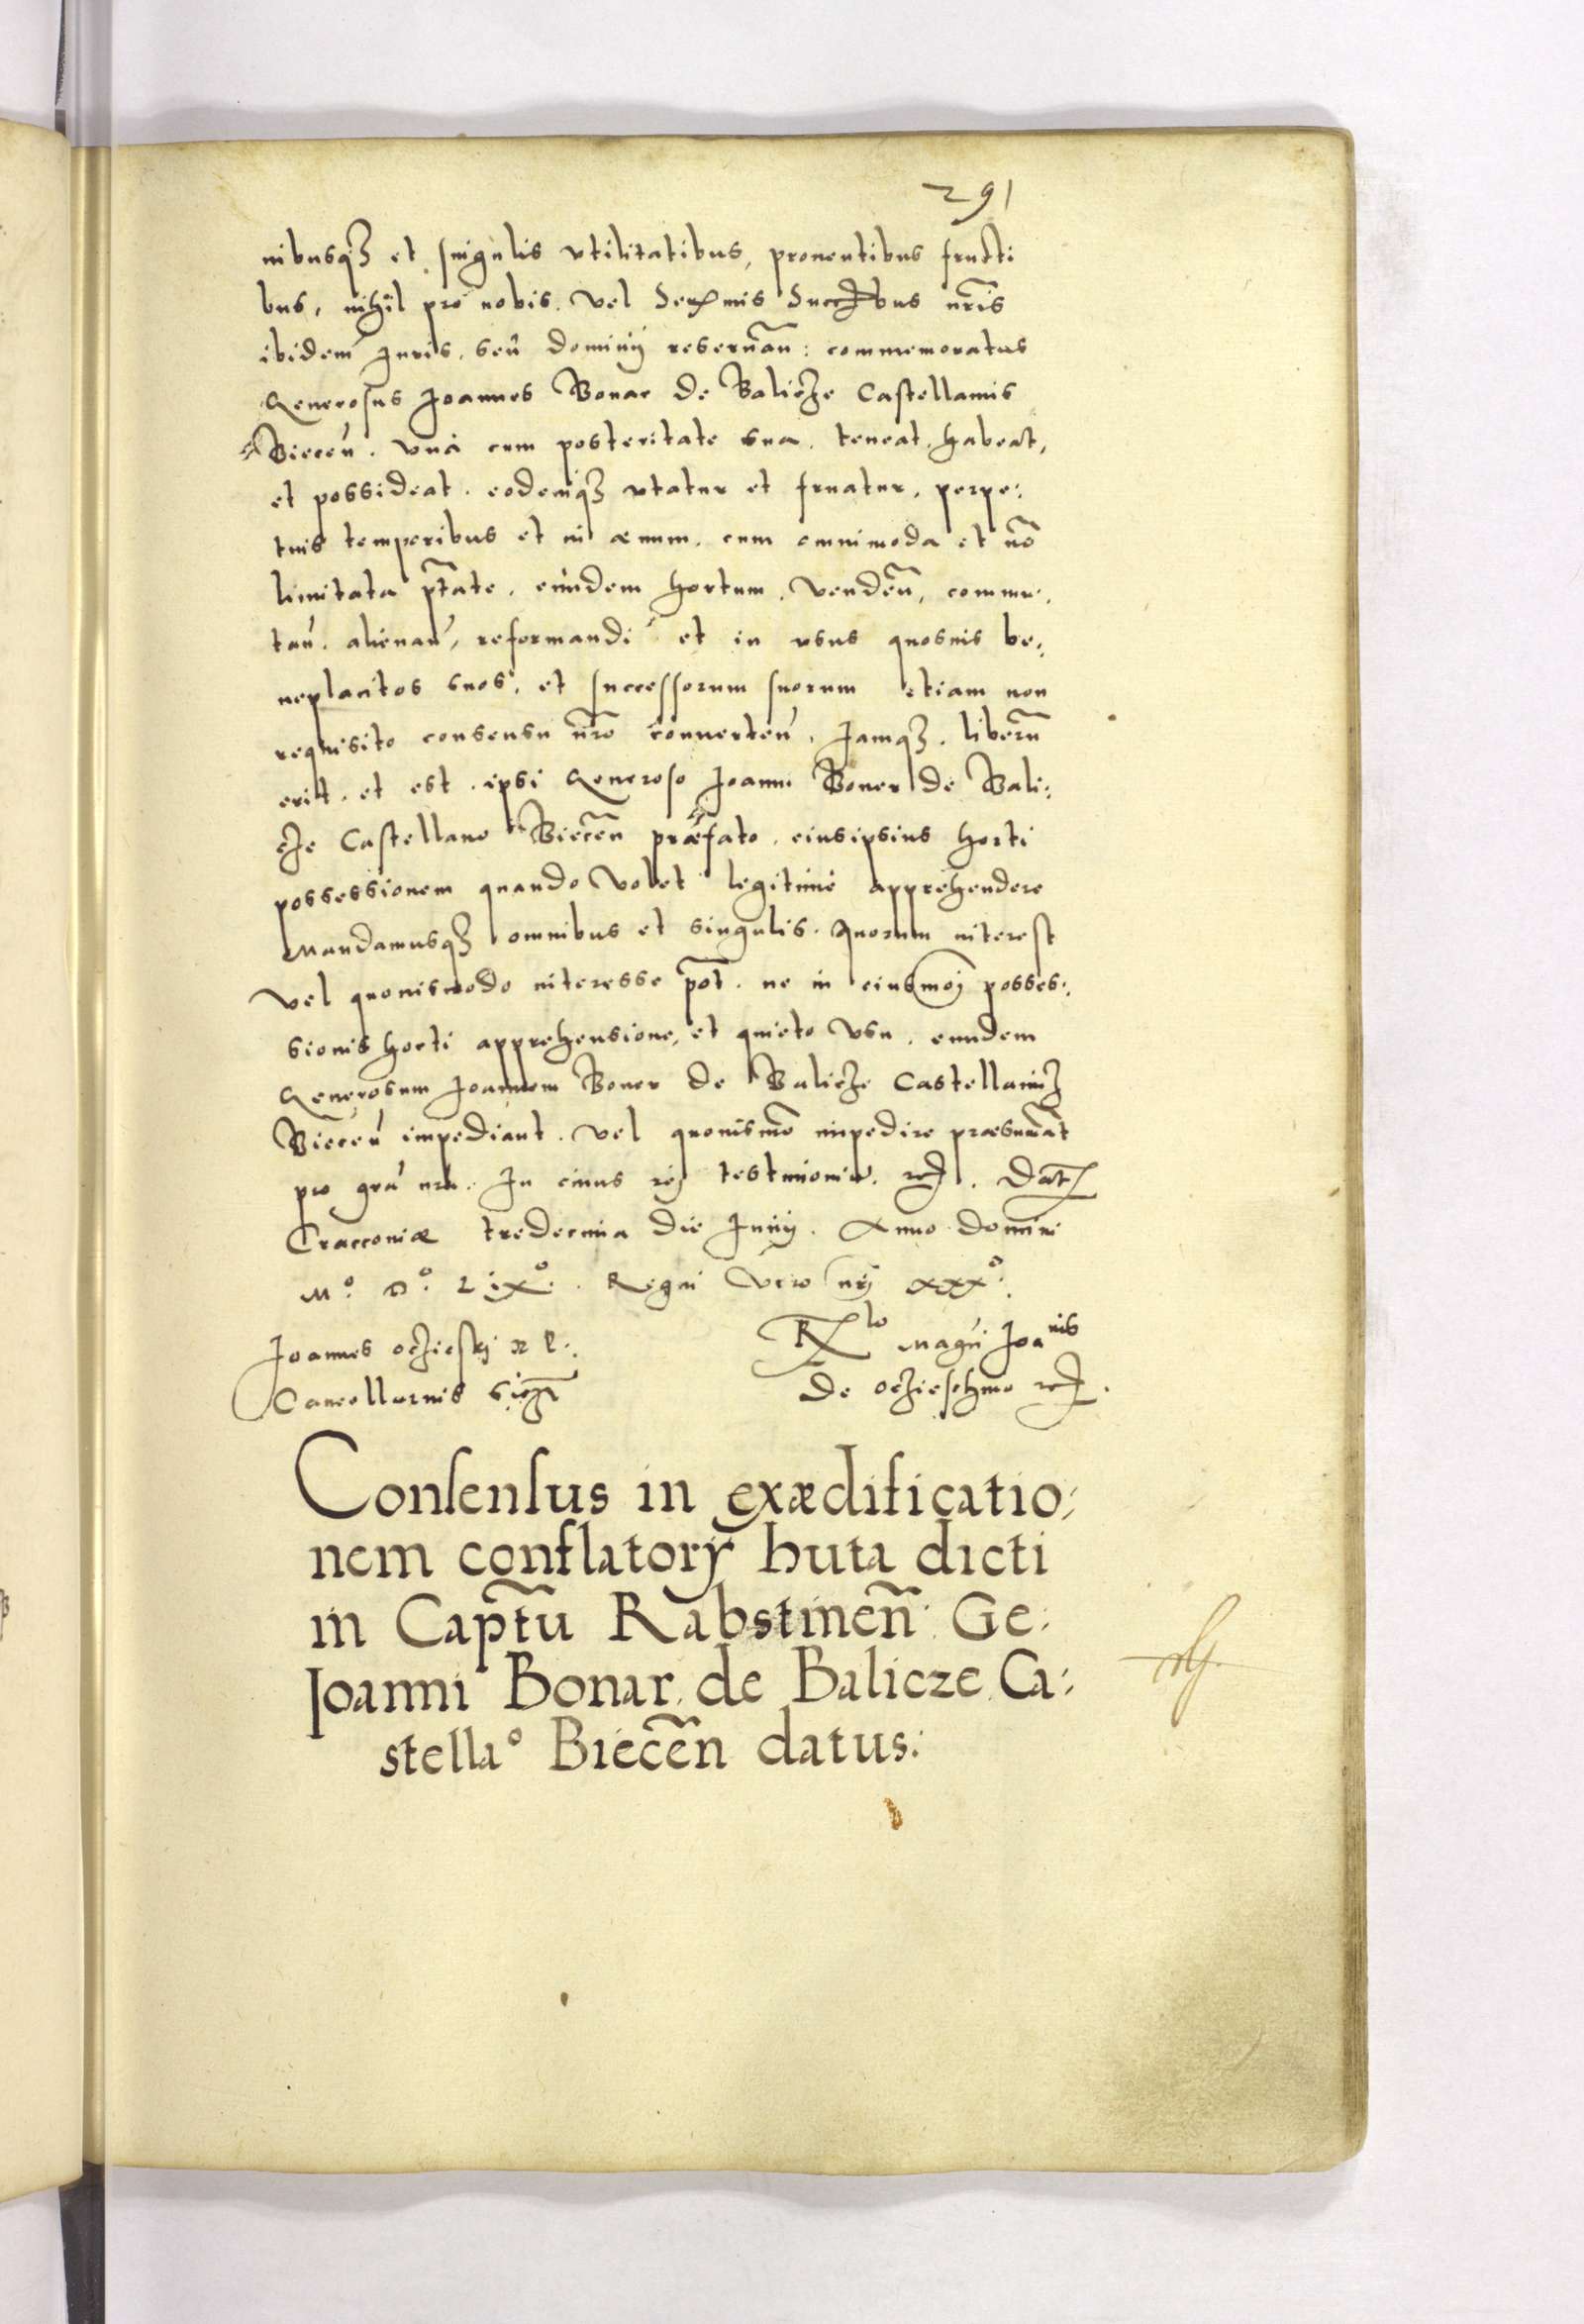 291
nibusqȝ et singulis vtilitatibus, prouentibus fructi
bus, nihil pro nobis. vel Sermis Succribus nris
ibidem Juris. seu dominij reseruañ: commemoratus
Generosus Joannes Bonar de Balicze Castellanus
Bieceñ. vna cum posteritate sua. teneat. habeat,
et possideat. eodemqȝ vtatur et fruatur, perpe:
tuis temporibus et in æuum. cum omnimoda et nō
limitata ptate. eundem hortum. vendeñ, commu:
tañ. alienañ, reformandi et in vsus quosuis be:
neplacitos suos, et successorum suorum etiam non
requisito consensu nro conuerteñ. Jamqȝ. liberũ
erit. et est. ipsi Generoso Joanni Boner de Bali:
cze Castellano Bieceñ præfato. eiusipsius horti
possessionem quando volet legitime apprehendere
Mandamusqȝ omnibus et singulis. quorum interest
vel quouismodo interesse pot. ne in eiusmoj posses:
sionis horti apprehensione, et quieto vsu. eundem
Generosum Joannem Boner de Balicze Castellanuȝ
Bieceñ impediant. vel quouismo impedire præsumāt
pro gra nra. In cuius rej testimonium. rei. Dat
Cracouiæ tredecima die Junij. Anno domini
Mº. Dº. Lixº. Regni vero nrj xxxº.
Joannes oczieskj R P.
Cancellarius sszt
Rlo Magñ Joanis
de oczieschino rei.
Consensus in exædificatio:
nem conflatorij huta dicti
in Captũ Rabstineñ Ge:
Joanni Bonar de Balicze Ca:
stellaº Bieceñ datus: